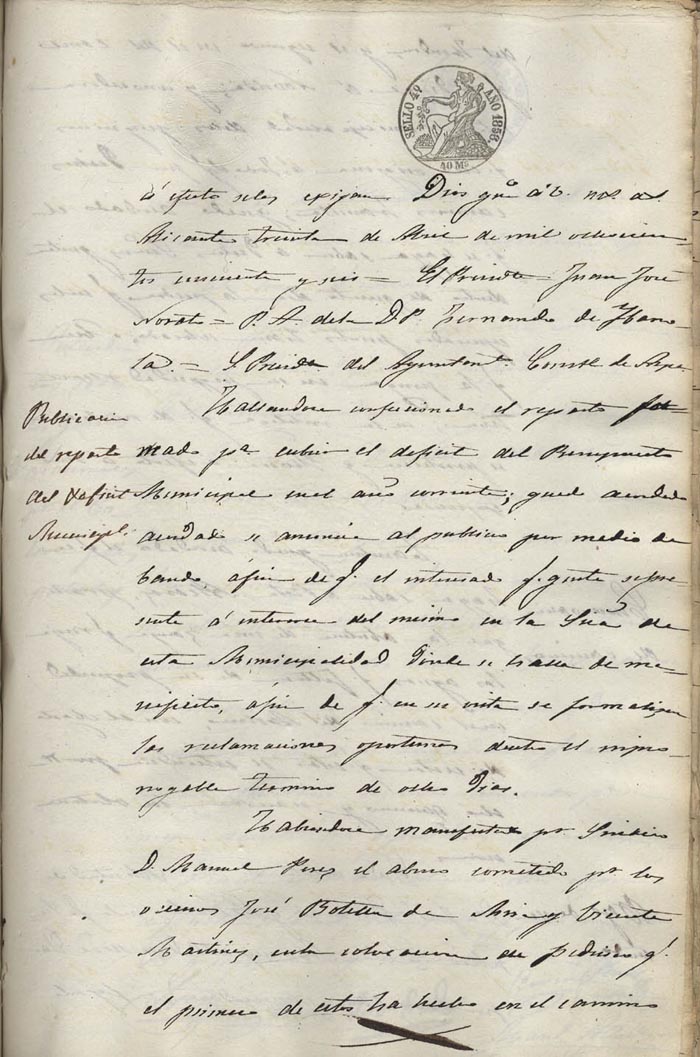 SELLO 4º AÑO 1858.
40 Ms
á efecto se les exijan Dios gue á V. ms. as.
Alicante treinta de Abril de mil ochocien
tos cincuenta y = El Presidte Juan José
Norato = P. A. de la D. P. Fernando de Ibarro
la = S. Preside del Ayuntamt. Constl. de
Publicacion
Hallandose confeccionado el reparto for=
del reparto
mado pa. cubrir el deficit del Presupuesto
del Deficit
Municipal en el año corriente; quedó acordado
Municipal.
acordado se anuncie al publico por medio de
bando áfin de q. el interesado q. guste se pre
sente á enterarse del mismo en la Sria de
esta Municipalidad donde se halla de ma
nifiesto, áfin de q. en su vista se formalizen
las reclamaciones oportunas dentro el impro
rogable termino de ocho dias.
Habiendose manifestado pr. Sindico
D. Manuel Perez el abuso cometido pr. los
vecinos José Botella de y Vicente
Martinez, en la colocacion de q.
el primero de estos ha hecho en el camino